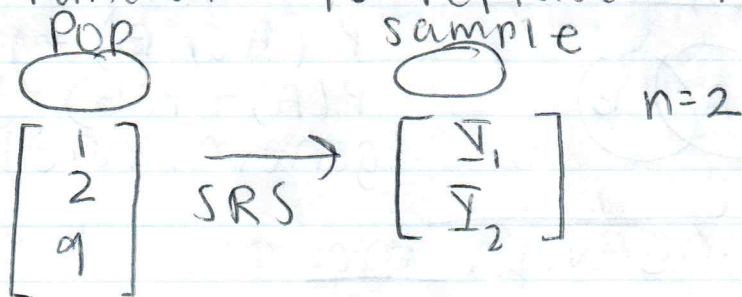 POP sample
n=2
1
2
9
SRS
Y₁
Y₂